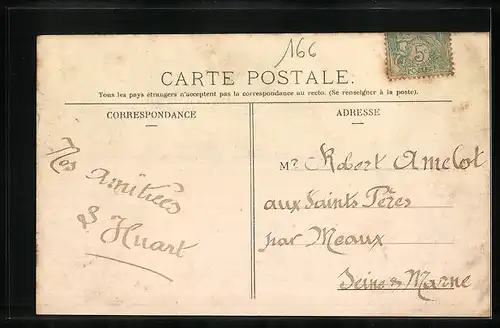 166
CARTE POSTALE.
Tous les pays étrangers n'acceptent pas la correspondance au recto. (Se renseigner à la poste).
CORRESPONDANCE
ADRESSE
Nos
Amitiées
S. Huart
Mr Robert Amelot
aux Saints Pères
par Meaux
Seine & Marne
5